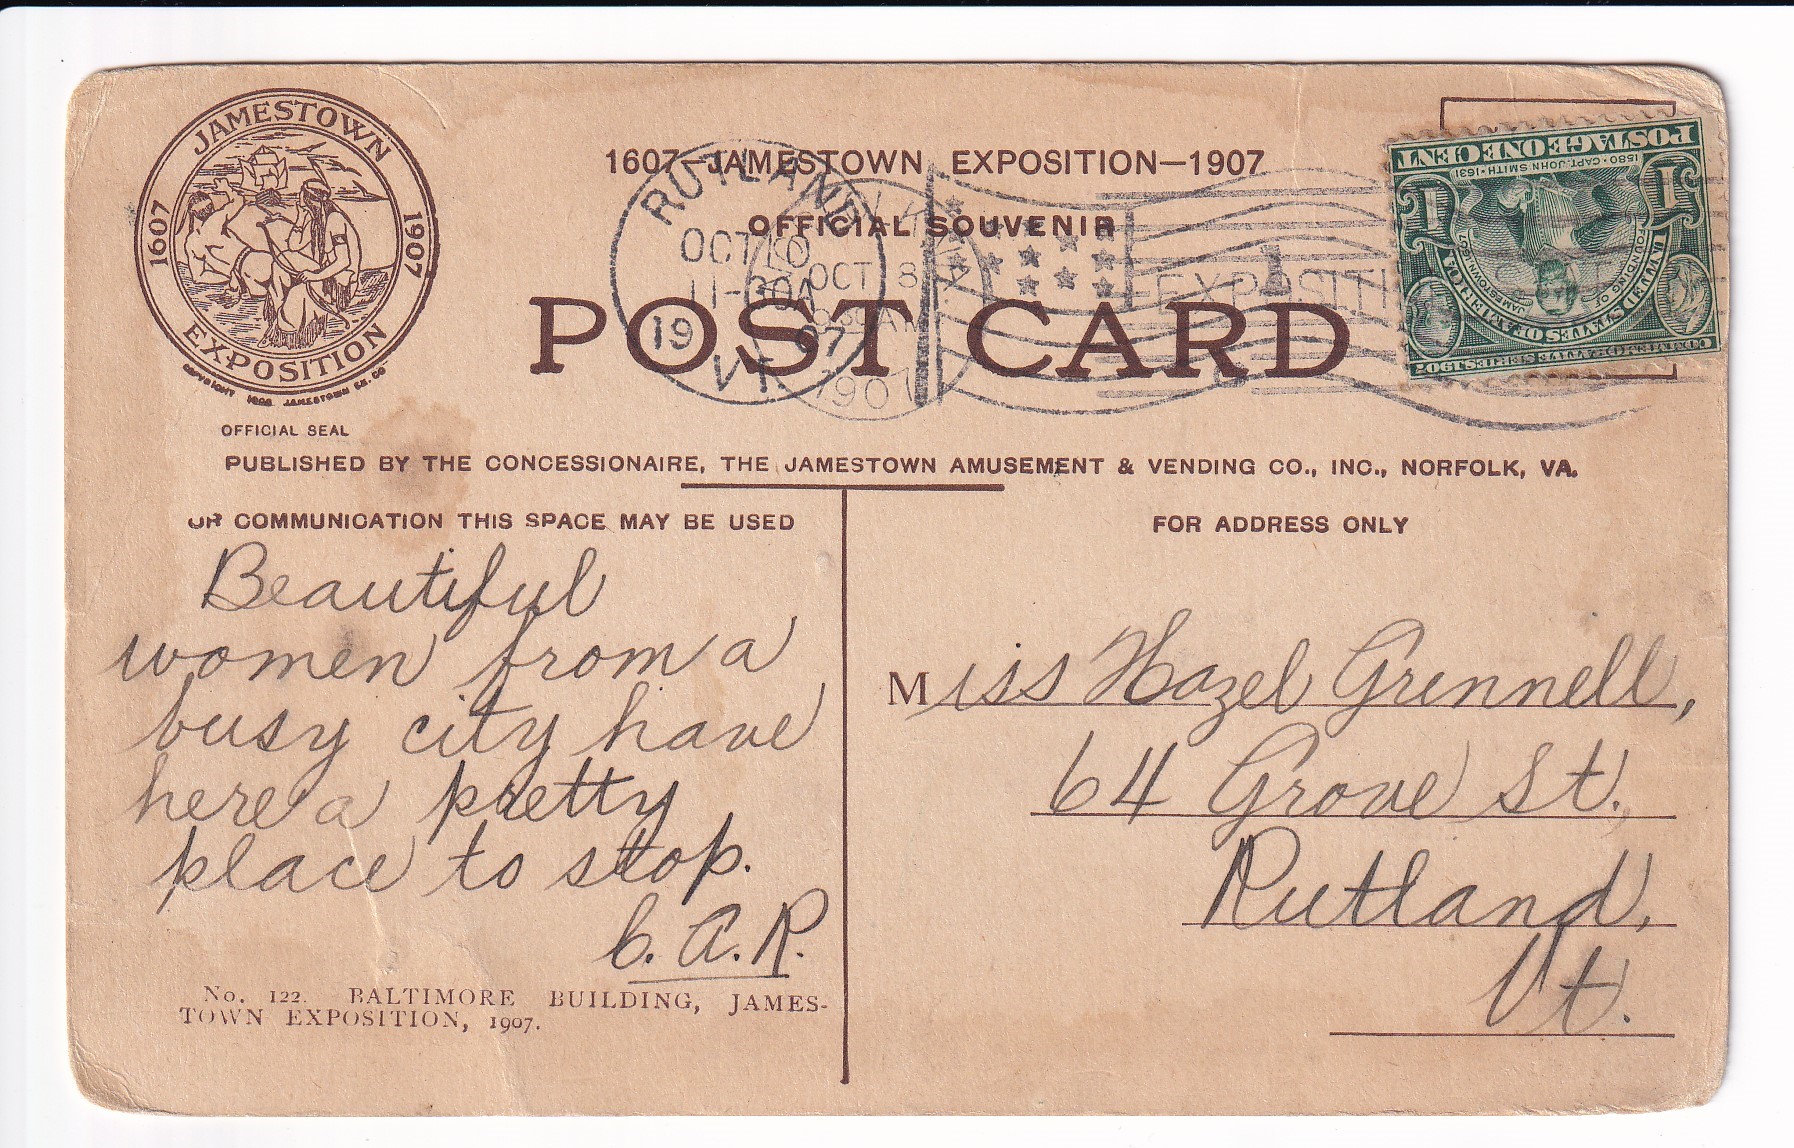 JAMESTOWN
1607
1907
EXPOSITION
COPYRIGHT 1906 JAMESTOWN EX. CO
OFFICIAL SEAL
1607—JAMESTOWN EXPOSITION—1907
OFFICIAL SOUVENIR
POST CARD
RUTLAND
OCT 10
11-30A
19 07
VT.
OCT 8
1907
EXPOSITI
POSTAGE ONE CENT
1580 · CAPT. JOHN SMITH · 1631
1 1
FOUNDING OF JAMESTOWN 1607
UNITED STATES OF AMERICA
COMMEMORATIVE SERIES 1907
PUBLISHED BY THE CONCESSIONAIRE, THE JAMESTOWN AMUSEMENT & VENDING CO., INC., NORFOLK, VA.
OR COMMUNICATION THIS SPACE MAY BE USED
Beautiful
women from a
busy city have
here a pretty
place to stop.
C. A. R.
No. 122. BALTIMORE BUILDING, JAMES-
TOWN EXPOSITION, 1907.
FOR ADDRESS ONLY
Miss Hazel Grennell,
64 Grove St.,
Rutland,
Vt.